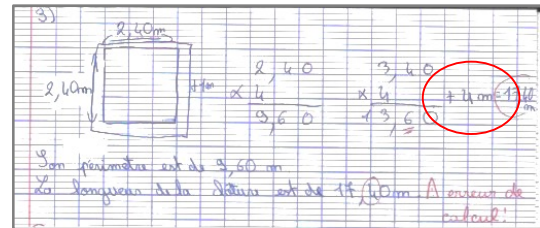 3)
2,40m
2,40m +1m
2,40 3,40
x 4 x 4 + 4 m = 17,60 m
9,60 13,60
Son périmètre est de 9,60 m
La longueur de la clôture est de 17,60m. A erreur de
calcul!